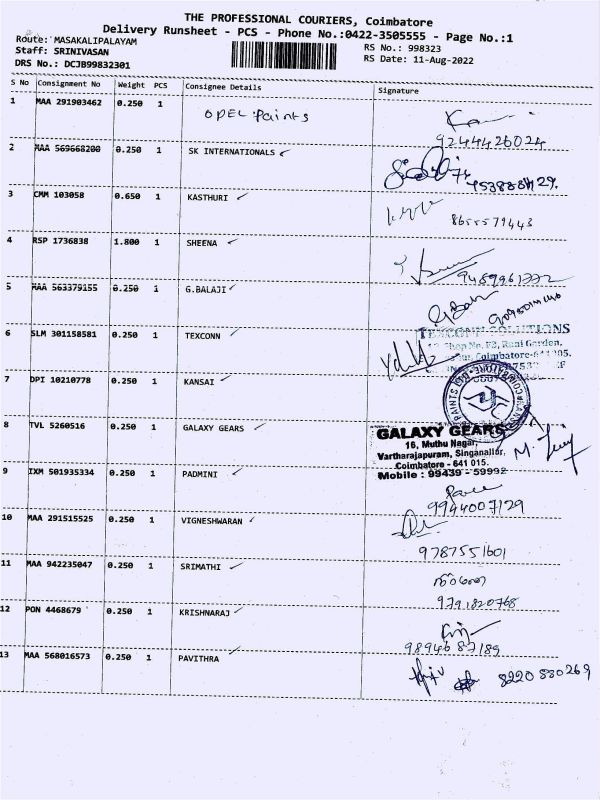 THE PROFESSIONAL COURIERS, Coimbatore
Delivery Runsheet - PCS - Phone No.:0422-3505555 - Page No.:1
Route: MASAKALIPALAYAM
Staff: SRINIVASAN
DRS No.: DCJB99832301
RS No.: 998323
RS Date: 11-Aug-2022
S No Consignment No Weight PCS Consignee Details Signature
1 MAA 291903462 0.250 1 OPEL Paints
9244426024
2 MAA 569668200 0.250 1 SK INTERNATIONALS
3 CMM 103058 0.650 1 KASTHURI
8655579443
4 RSP 1736838 1.800 1 SHEENA
5 MAA 563379155 0.250 1 G.BALAJI
6 SLM 301158581 0.250 1 TEXCONN
TEXCONN SOLUTIONS
Shop No. F2, Rani Garden,
Coimbatore-641 005.
7 DPI 10210778 0.250 1 KANSAI
8 TVL 5260516 0.250 1 GALAXY GEARS
GALAXY GEARS
16, Muthu Nagar,
Vartharajapuram, Singanallur,
Coimbatore - 641 015.
Mobile : 99439 - 59992
9 IXM 501935334 0.250 1 PADMINI
9944007129
10 MAA 291515525 0.250 1 VIGNESHWARAN
9787551601
11 MAA 942235047 0.250 1 SRIMATHI
9791820768
12 PON 4468679 0.250 1 KRISHNARAJ
9894687189
13 MAA 568016573 0.250 1 PAVITHRA
8220530269